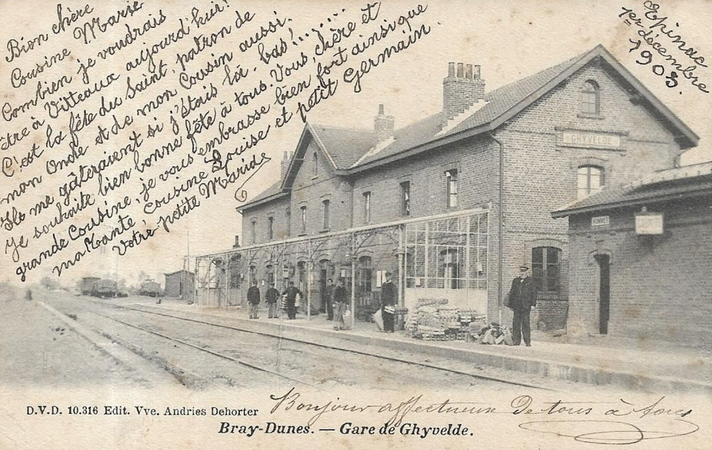 Bien chère
Cousine Marie
Combien je voudrais
être à Vitteaux aujourd'hui!
C'est la fête du Saint patron de
mon Oncle et de mon Cousin aussi.
Ils me gâteraient si j'étais là-bas!...,...
je souhaite bien bonne fête à tous. Vous, chère et
grande Cousine, je vous embrasse bien fort ainsi que
ma Tante, Cousine Louise et petit Germain.
Votre petite Maride
Epinac
1er décembre
1903
GHYVELDE
HOMMES
D.V.D. 10.316 Edit. Vve. Andries Dehorter
Bonjour affectueux de tous à tous
Bray-Dunes. — Gare de Ghyvelde.